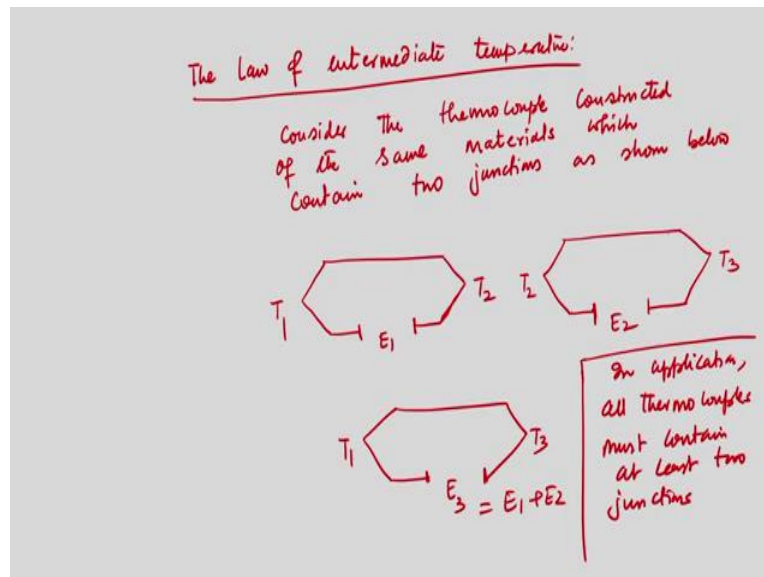 The Law of intermediate temperature:
Consider The thermocouple Constructed
of the same materials which
Contain two junctions as shown below
T1 T2 T2 T3
E1 E2
T1 T3
E3 = E1 + E2
In application,
all Thermocouples
must contain
at least two
junctions